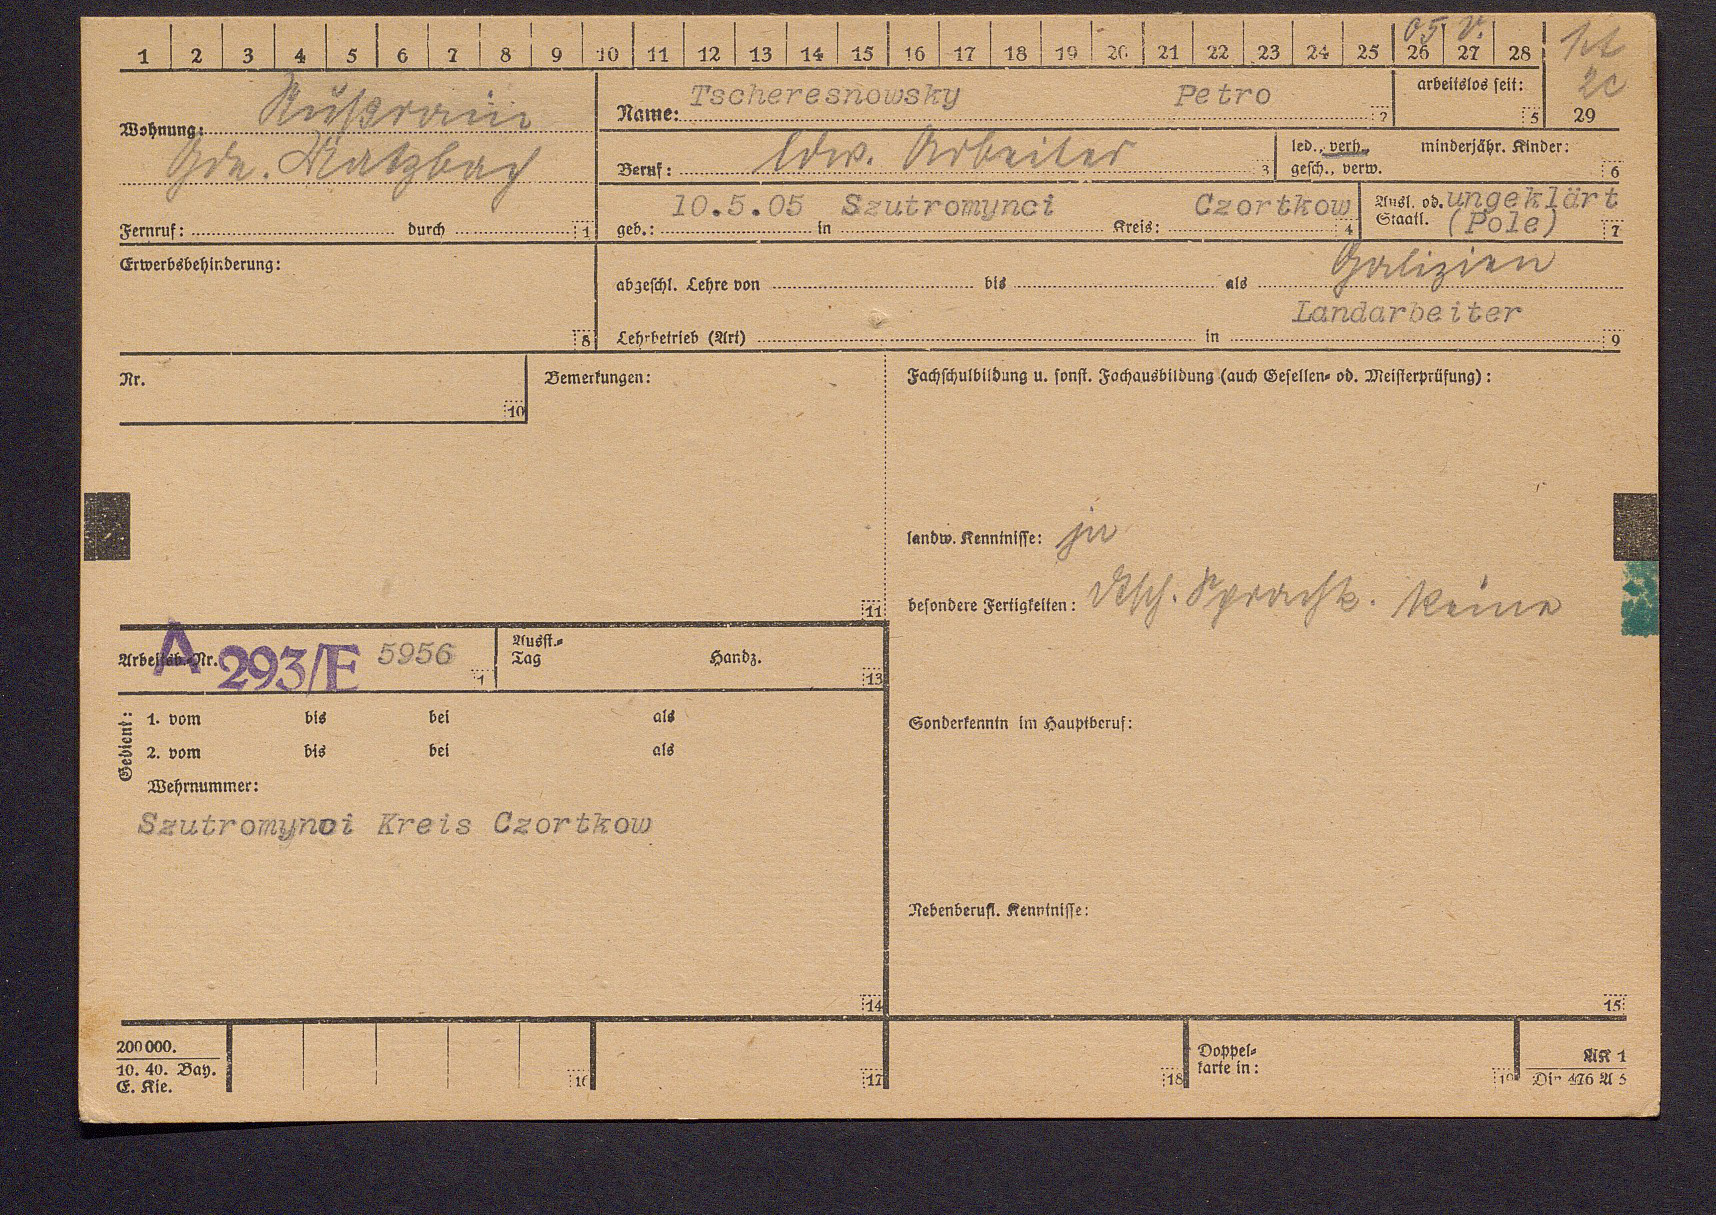 05 V.
1 2 3 4 5 6 7 8 9 10 11 12 13 14 15 16 17 18 19 20 21 22 23 24 25 26 27 28
29
Wohnung: Nußrain
Gde. Matzbach
Fernruf: durch 1
Name: Tscheresnowsky Petro 2
arbeitslos seit: 5
Beruf: ldw. Arbeiter 3
led., verh., minderjähr. Kinder:
gesch., verw. 6
geb.: 10.5.05 in Szutromynci Kreis: Czortkow 4
Ausl. od. ungeklärt
Staatl. (Pole) 7
Erwerbsbehinderung: 8
abgeschl. Lehre von bis als Galizien
Landarbeiter
Lehrbetrieb (Art) in 9
Nr. 10
Bemerkungen: 11
Fachschulbildung u. sonst. Fachausbildung (auch Gesellen- od. Meisterprüfung):
landw. Kenntnisse: ja
besondere Fertigkeiten: Dtsch. Sprachk. keine
Arbeitsb.-Nr. A 293/E 5956
Ausst.-
Tag Handz. 13
Sonderkenntn im Hauptberuf:
Gedient:
1. vom bis bei als
2. vom bis bei als
Wehrnummer:
Szutromynci Kreis Czortkow
14
Nebenberufl. Kenntnisse:
15
200 000.
10. 40. Bay.
E. Kie.
16 17 18
Doppel-
karte in: 19
AK 1
Din 476 A 5